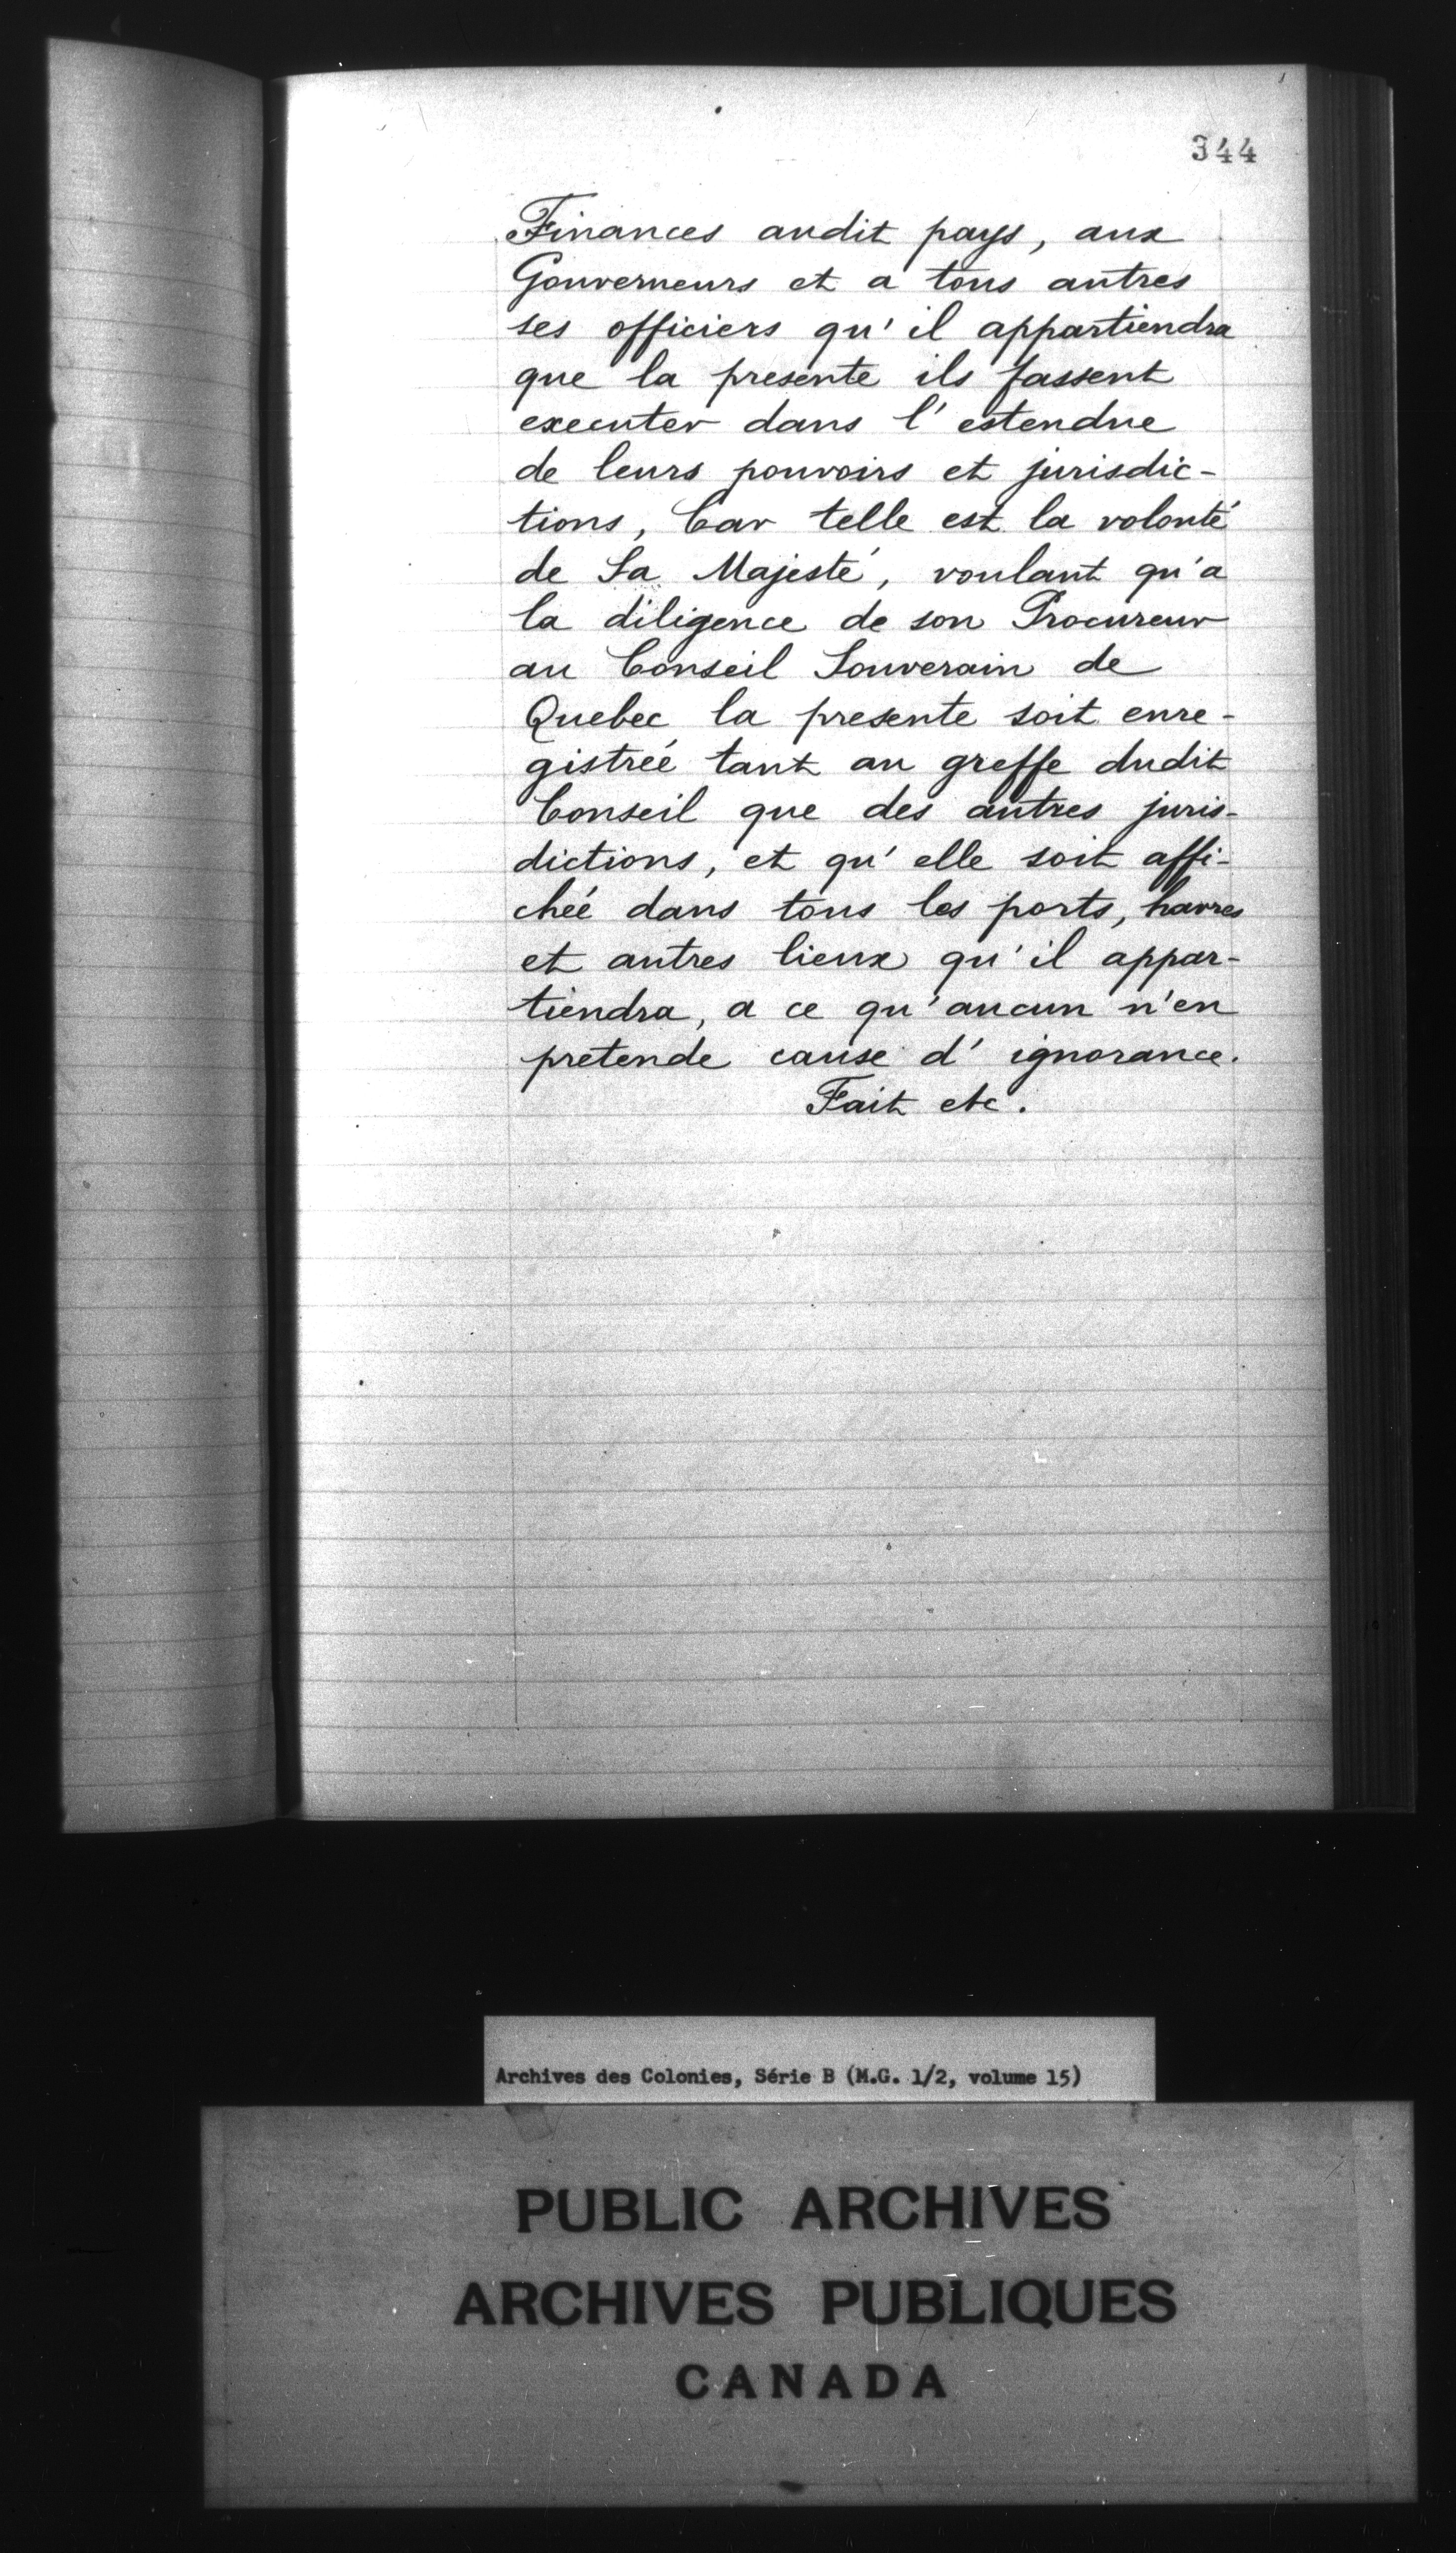 344
Finances audit pays, aux
Gouverneurs et a tous autres
ses officiers qu'il appartiendra
que la presente ils fassent
executer dans l'estendue
de leurs pouvoirs et jurisdic-
tions, Car telle est la volonté
de Sa Majesté, voulant qu'a
la diligence de son Procureur
au Conseil Souverain de
Quebec la presente soit enre-
gistreé tant au greffe dudit
Conseil que des autres juris-
dictions, et qu'elle soit affi-
cheé dans tous les ports, havres
et autres lieux qu'il appar-
tiendra, a ce qu'aucun n'en
pretende cause d'ignorance.
Fait etc.
Archives des Colonies, Série B (M.G. 1/2, volume 15)
PUBLIC ARCHIVES
ARCHIVES PUBLIQUES
CANADA